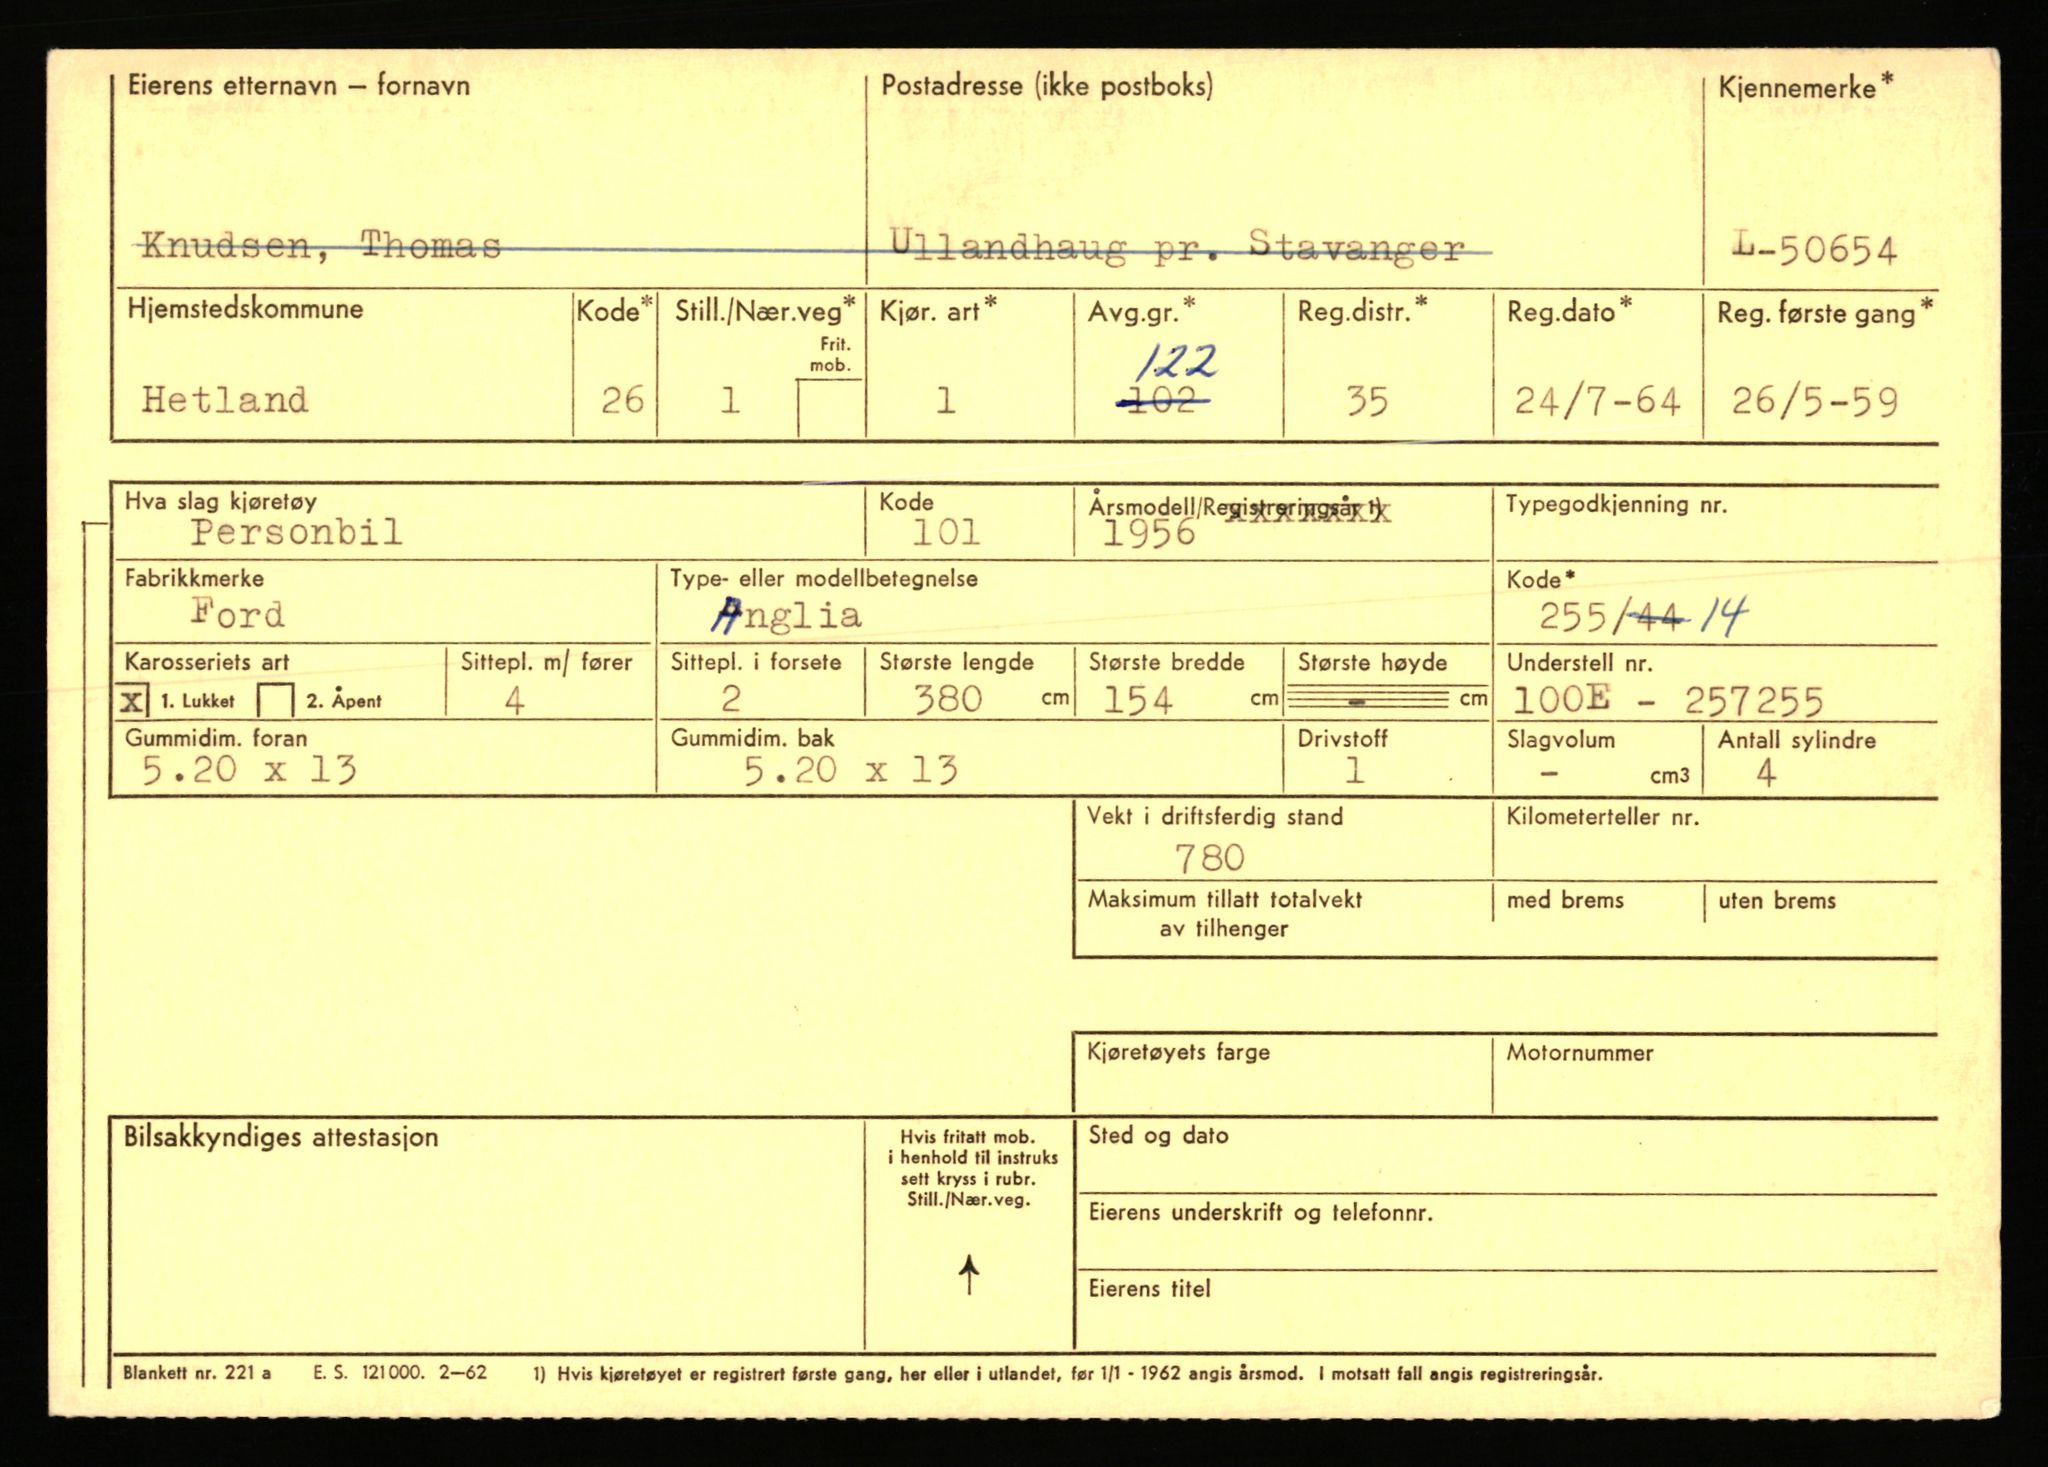 Eierens etternavn – fornavn Postadresse (ikke postboks) Kjennemerke*
Knudsen, Thomas Ullandhaug pr. Stavanger L-50654
Hjemstedskommune Kode* Still./Nær.veg* Kjør. art* Avg.gr.* Reg.distr.* Reg.dato* Reg. første gang*
Frit.
mob.
122
Hetland 26 1 1 102 35 24/7-64 26/5-59
Hva slag kjøretøy Kode Årsmodell/Registreringsår 1) Typegodkjenning nr.
Personbil 101 1956 xxxxxxx
Fabrikkmerke Type- eller modellbetegnelse Kode*
Ford Anglia 255/44 14
Karosseriets art Sittepl. m/ fører Sittepl. i forsete Største lengde Største bredde Største høyde Understell nr.
x 1. Lukket 2. Åpent 4 2 380 cm 154 cm - cm 100E - 257255
Gummidim. foran Gummidim. bak Drivstoff Slagvolum Antall sylindre
5.20 x 13 5.20 x 13 1 - cm3 4
Vekt i driftsferdig stand Kilometerteller nr.
780
Maksimum tillatt totalvekt med brems uten brems
av tilhenger
Kjøretøyets farge Motornummer
Bilsakkyndiges attestasjon Hvis fritatt mob. Sted og dato
i henhold til instruks
sett kryss i rubr.
Still./Nær.veg.
Eierens underskrift og telefonnr.
Eierens titel
Blankett nr. 221 a E. S. 121000. 2–62 1) Hvis kjøretøyet er registrert første gang, her eller i utlandet, før 1/1 - 1962 angis årsmod. I motsatt fall angis registreringsår.